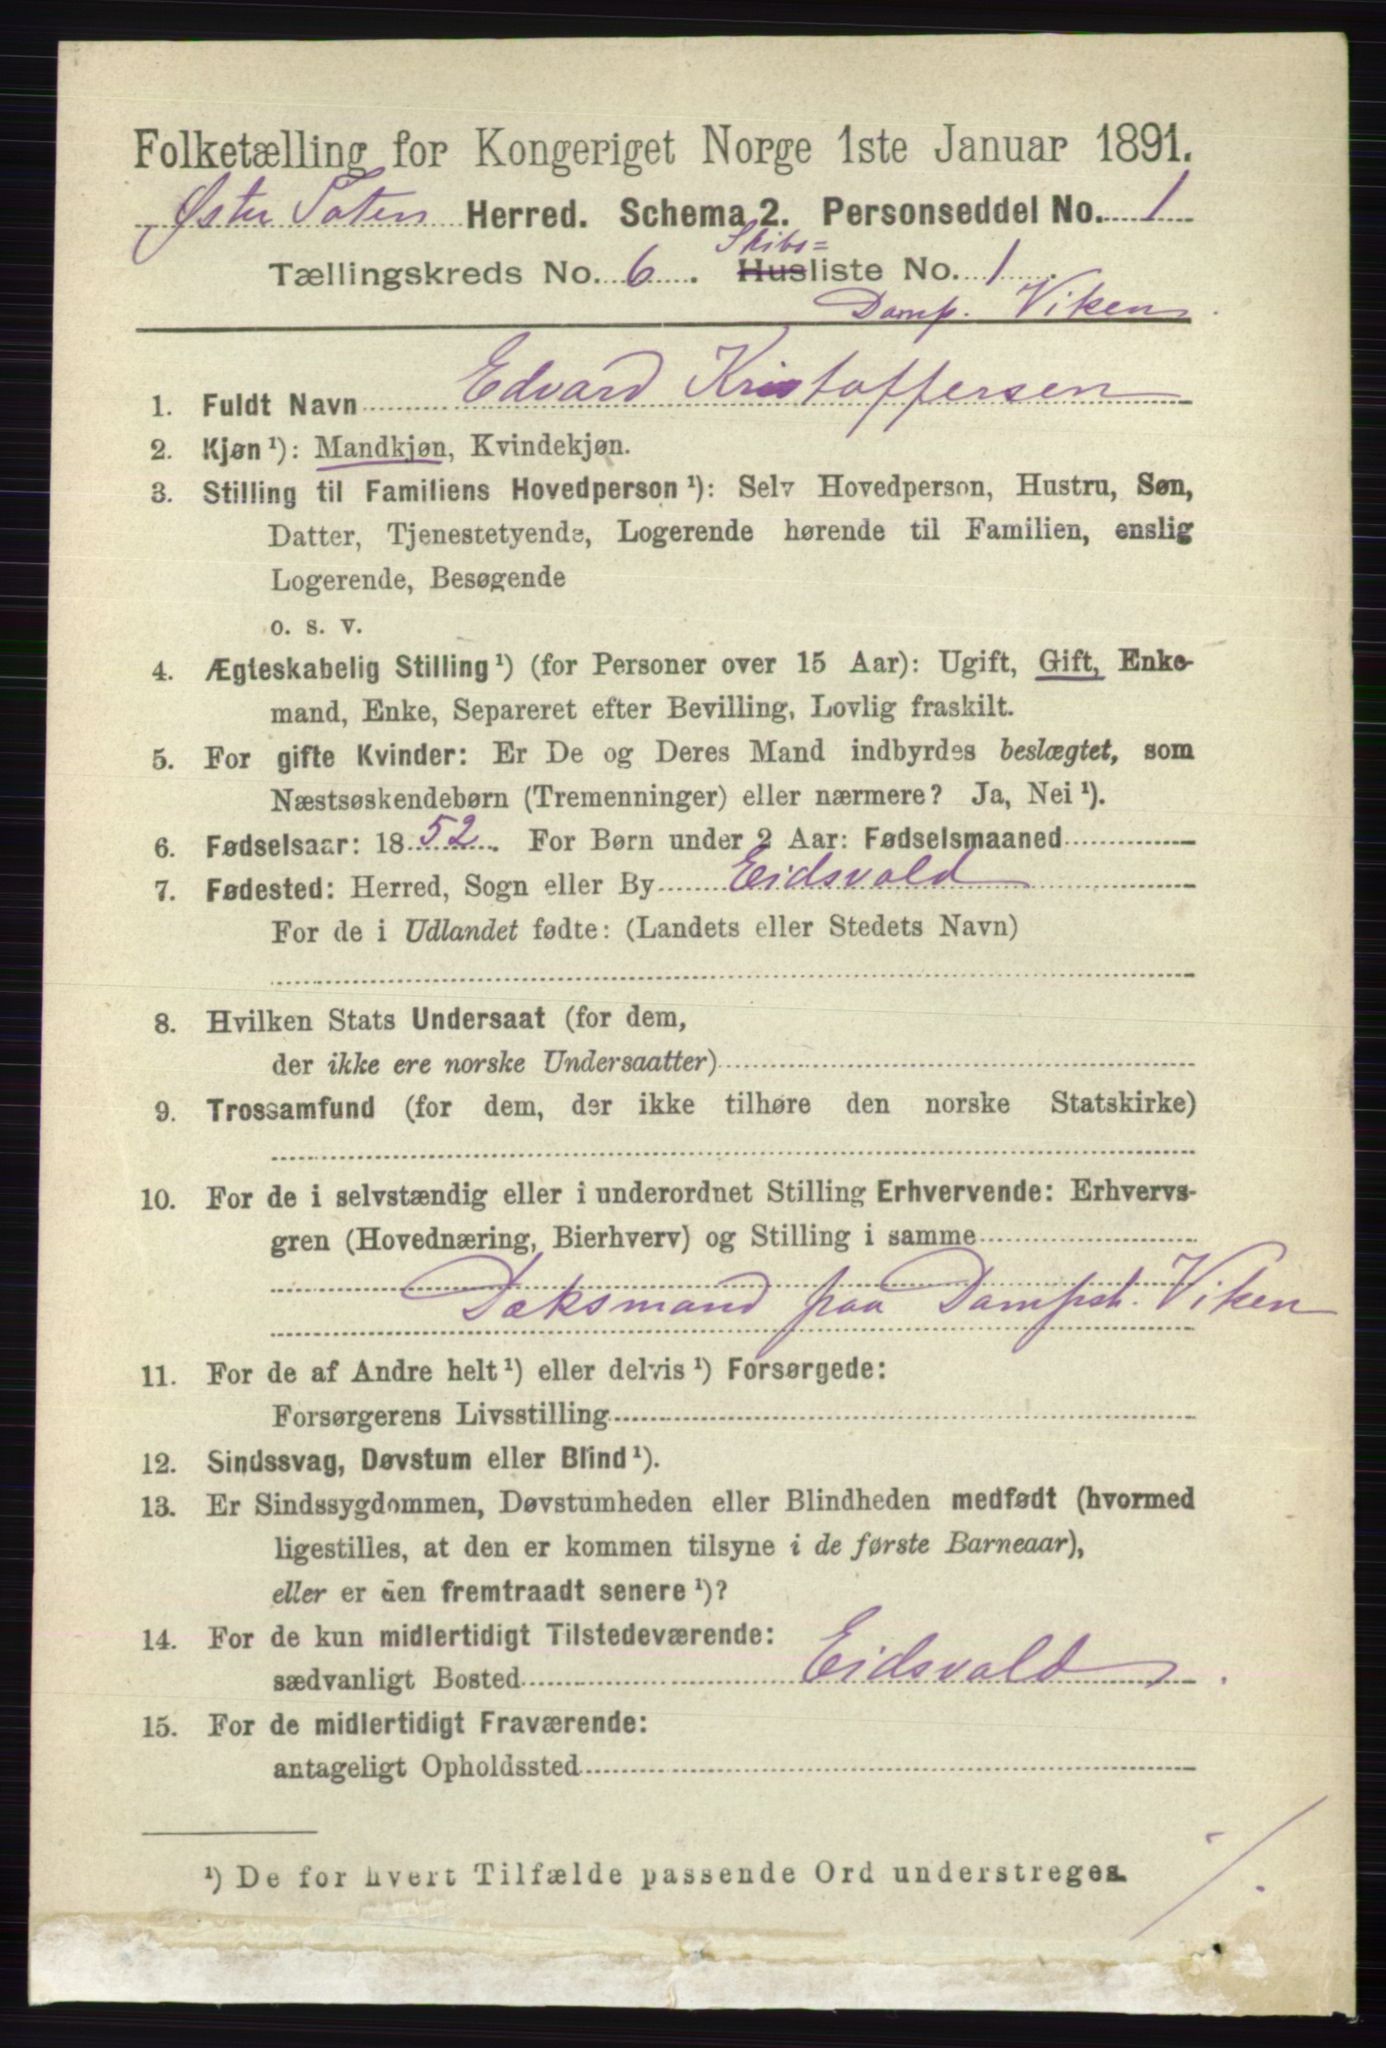 Folketælling for Kongeriget Norge 1ste Januar 1891.
Øster Toten Herred. Schema 2. Personseddel No. 1
Tællingskreds No. 6. Husliste No. 1.
Skibs=
Damp. Viken.
1. Fuldt Navn Edvard Kristoffersen
2. Kjøn ¹): Mandkjøn, Kvindekjøn.
3. Stilling til Familiens Hovedperson ¹): Selv Hovedperson, Hustru, Søn,
Datter, Tjenestetyende, Logerende hørende til Familien, enslig
Logerende, Besøgende
o. s. v.
4. Ægteskabelig Stilling ¹) (for Personer over 15 Aar): Ugift, Gift, Enke-
mand, Enke, Separeret efter Bevilling, Lovlig fraskilt.
5. For gifte Kvinder: Er De og Deres Mand indbyrdes beslægtet, som
Næstsøskendebørn (Tremenninger) eller nærmere? Ja, Nei ¹).
6. Fødselsaar: 1852. For Børn under 2 Aar: Fødselsmaaned
7. Fødested: Herred, Sogn eller By Eidsvold
For de i Udlandet fødte: (Landets eller Stedets Navn)
8. Hvilken Stats Undersaat (for dem,
der ikke ere norske Undersaatter)
9. Trossamfund (for dem, der ikke tilhøre den norske Statskirke)
10. For de i selvstændig eller i underordnet Stilling Erhvervende: Erhvervs-
gren (Hovednæring, Bierhverv) og Stilling i samme
Dæksmand paa Dampsk. Viken
11. For de af Andre helt ¹) eller delvis ¹) Forsørgede:
Forsørgerens Livsstilling
12. Sindssvag, Døvstum eller Blind ¹).
13. Er Sindssygdommen, Døvstumheden eller Blindheden medfødt (hvormed
ligestilles, at den er kommen tilsyne i de første Barneaar),
eller er den fremtraadt senere ¹)?
14. For de kun midlertidigt Tilstedeværende:
sædvanligt Bosted Eidsvold.
15. For de midlertidigt Fraværende:
antageligt Opholdssted
¹) De for hvert Tilfælde passende Ord understreges.